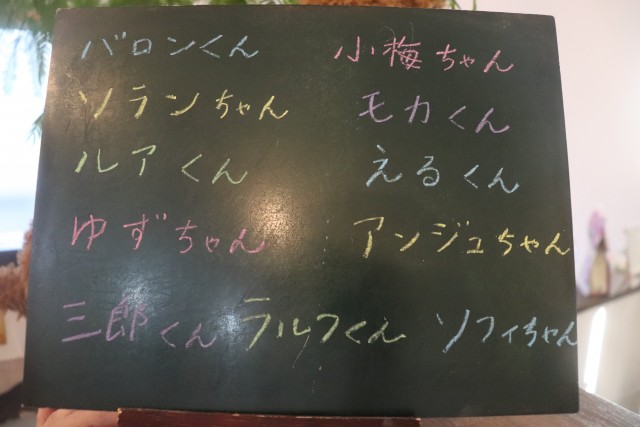 バロンくん 小梅ちゃん
ソランちゃん モカくん
ルアくん えるくん
ゆずちゃん アンジュちゃん
三郎くん ラルフくん ソフィちゃん